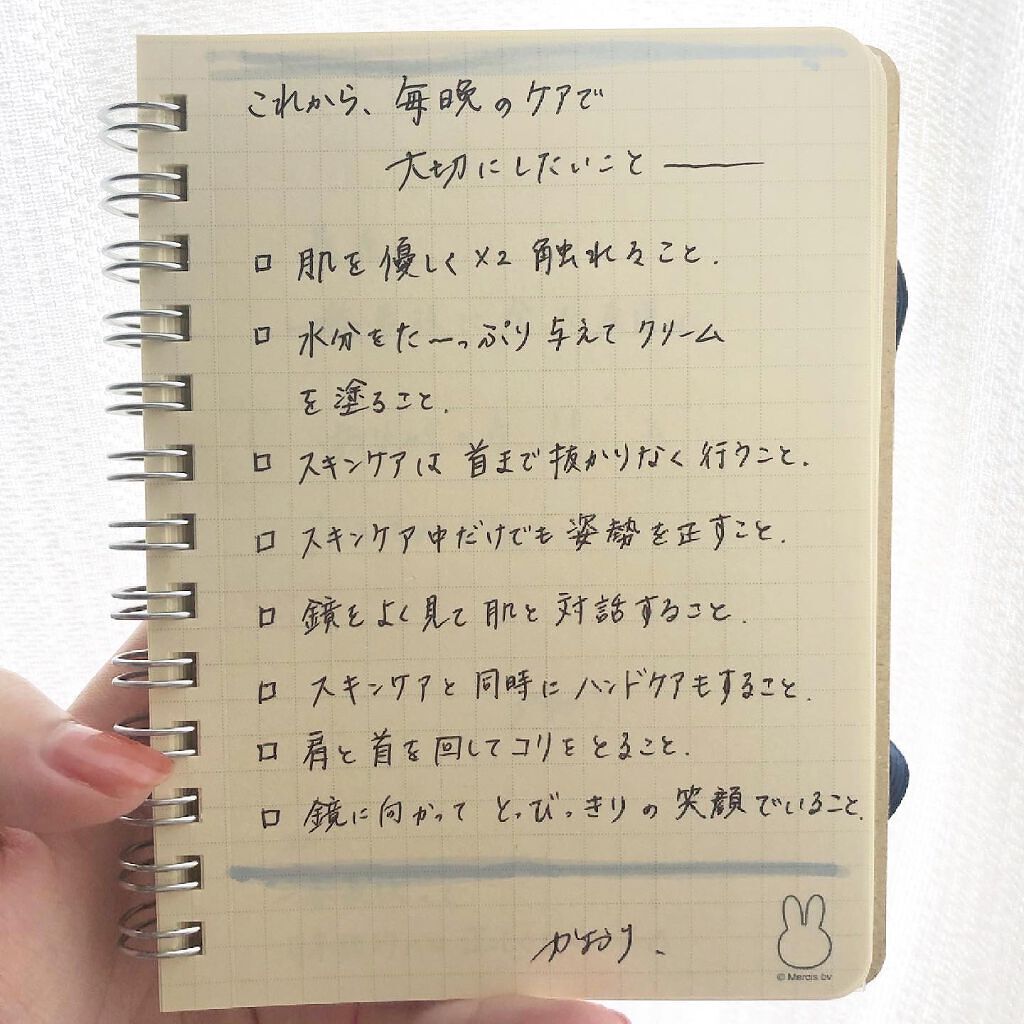 これから、毎晩のケアで
大切にしたいこと ―――
□ 肌を優しく×2 触れること.
□ 水分をた〜っぷり与えてクリーム
を塗ること.
□ スキンケアは首まで抜かりなく行うこと.
□ スキンケア中だけでも姿勢を正すこと.
□ 鏡をよく見て肌と対話すること.
□ スキンケアと同時にハンドケアもすること.
□ 肩と首を回してコリをとること.
□ 鏡に向かってとっびっきりの笑顔でいること.
© Mercis bv